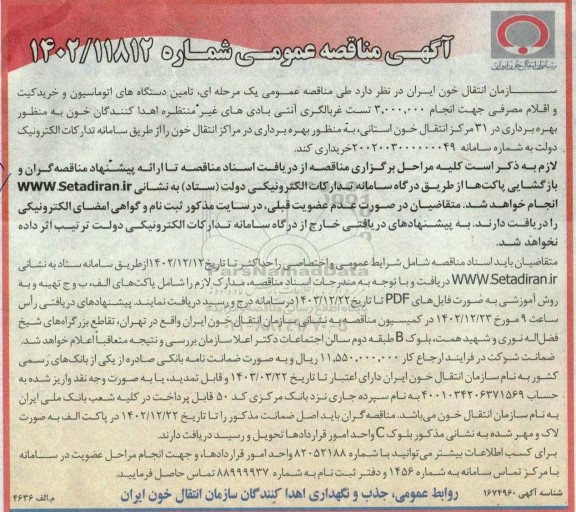 آگهی مناقصه عمومی شماره ۱۴۰۲/۱۱۸۱۲
سازمان انتقال خون ایران در نظر دارد طی مناقصه عمومی یک مرحله ای، تامین دستگاه های اتوماسیون و خریدکیت
و اقلام مصرفی جهت انجام ۳,۰۰۰,۰۰۰ تست غربالگری آنتی بادی های غیر منتظره اهدا کنندگان خون به منظور
بهره برداری در ۳۱ مرکز انتقال خون استانی، به منظور بهره برداری در مراکز انتقال خون را از طریق سامانه تدارکات الکترونیک
دولت به شماره سامانه ۲۰۰۲۰۰۳۰۰۰۰۰۰۴۹ خریداری کند.
لازم به ذکر است کلیه مراحل برگزاری مناقصه از دریافت اسناد مناقصه تا ارائه پیشنهاد مناقصه‌گران و
بازگشایی پاکت‌ها از طریق درگاه سامانه تدارکات الکترونیکی دولت (ستاد) به نشانی WWW.Setadiran.ir
انجام خواهد شد. متقاضیان در صورت عدم عضویت قبلی، در سایت مذکور ثبت نام و گواهی امضای الکترونیکی
را دریافت دارند. به پیشنهادهای دریافتی خارج از درگاه سامانه تدارکات الکترونیکی دولت ترتیب اثر داده
نخواهد شد.
متقاضیان باید اسناد مناقصه شامل شرایط عمومی و اختصاصی را حداکثر تا تاریخ ۱۴۰۲/۱۲/۱۲ از طریق سامانه ستاد به نشانی
WWW.Setadiran.ir دریافت و با توجه به مندرجات اسناد مناقصه، مدارک لازم را شامل پاکت‌های الف، ب و ج تهیه و به
روش آموزشی به صورت فایل های PDF تا تاریخ ۱۴۰۳/۱۲/۲۲ در سامانه درج و رسید دریافت نمایند. پیشنهادهای دریافتی رأس
ساعت ۹ مورخ ۱۴۰۲/۱۲/۲۳ در کمیسیون مناقصه به نشانی سازمان انتقال خون ایران واقع در تهران، تقاطع بزرگراه‌های شیخ
فضل اله نوری و شهید همت، بلوک B طبقه دوم سالن اجتماعات دکتر اعلا سازمان بررسی و نتیجه متعاقباً اعلام خواهد شد.
ضمانت شرکت در فرایند ارجاع کار ۱۱,۵۵۰,۰۰۰,۰۰۰ ریال و به صورت ضمانت نامه بانکی صادره از یکی از بانک‌های رسمی
کشور به نام سازمان انتقال خون ایران دارای اعتبار تا تاریخ ۱۴۰۳/۰۳/۲۲ و قابل تمدید، یا به صورت وجه نقد واریز شده به
حساب ۴۰۰۱۰۳۴۲۰۶۳۷۱۵۶۹ به نام سپرده جاری نزد بانک مرکزی کد ۵۰ قابل پرداخت در کلیه شعب بانک ملی ایران
به نام سازمان انتقال خون می‌باشد. مناقصه گران باید اصل ضمانت مذکور را تا تاریخ ۱۴۰۲/۱۲/۲۲ در پاکت الف به صورت
لاک و مهر شده به نشانی مذکور بلوک C واحد امور قراردادها تحویل و رسید دریافت دارند.
برای کسب اطلاعات بیشتر می توانید با شماره ۸۲۰۵۲۱۸۸ واحد امور قراردادها، و جهت انجام مراحل عضویت در سامانه
با مرکز تماس سامانه به شماره ۱۴۵۶ و دفتر ثبت نام به شماره ۸۸۹۹۹۹۳۷ تماس حاصل فرمایید.
شناسه آگهی ۱۶۷۴۹۶۰ روابط عمومی، جذب و نگهداری اهدا کنندگان سازمان انتقال خون ایران م.الف ۴۶۳۶